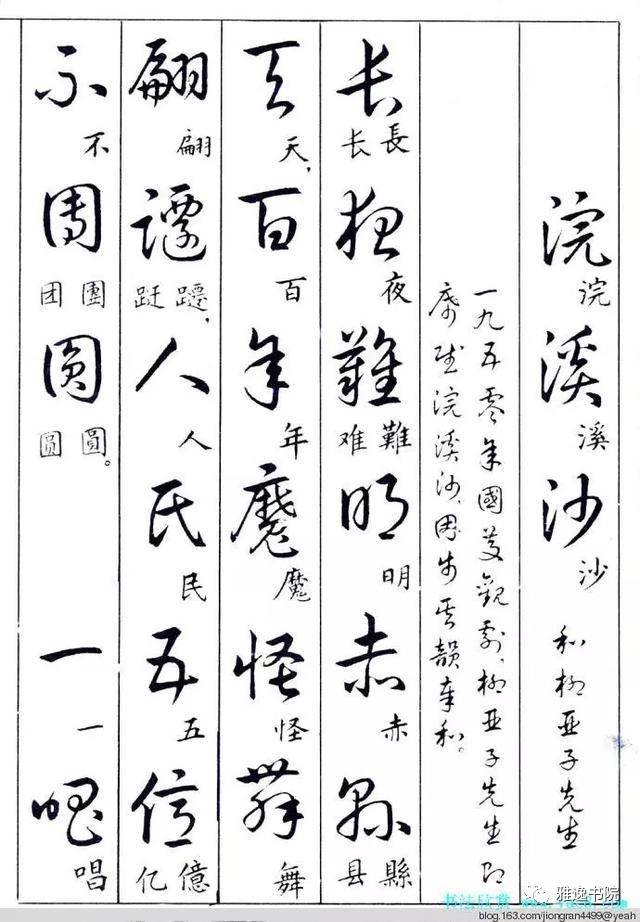 浣溪沙 和柳亚子先生
浣溪沙
一九五零年國慶觀劇,柳亚子先生即
席赋浣溪沙,因步其韻奉和。
長夜難明赤縣
長长夜難难明赤縣县
天百年魔怪舞
天,百年魔怪舞
翩躚人民五億
翩躚跹,人民五億亿
不團圓 一唱
不團团圓圆。一唱
书法欣赏
雅逸书院
blog.163.com/jiongran4499@yeah